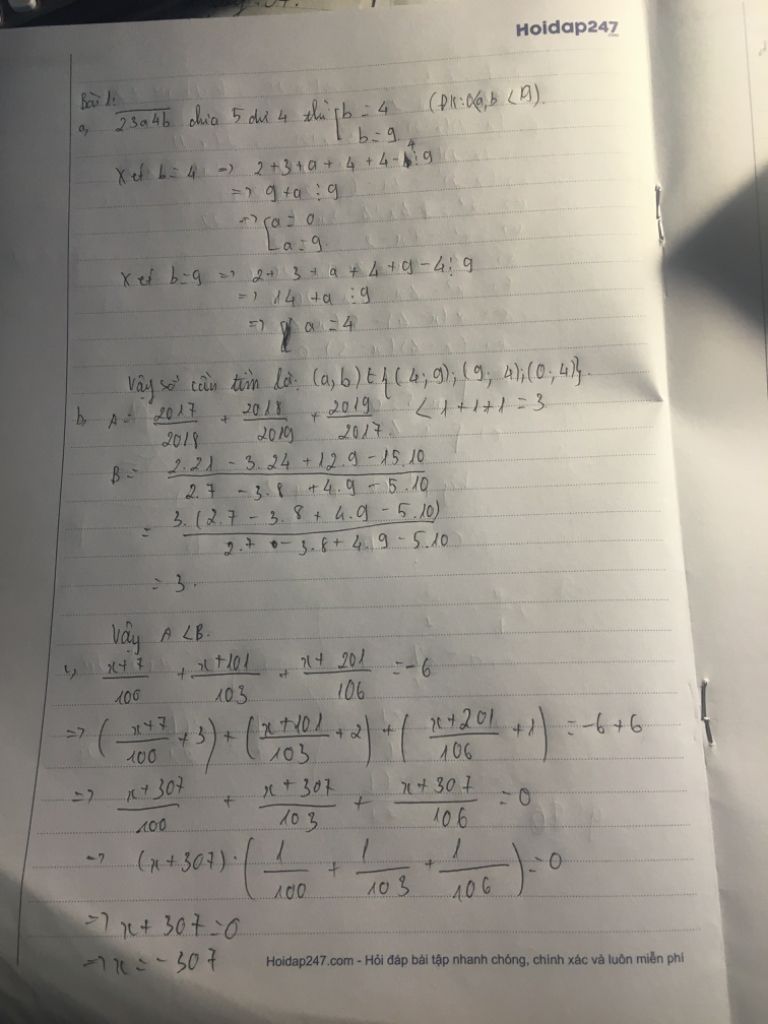 Hoidap247
.com
Bài 1:
a, 23a4b chia 5 dư 4 thì [b = 4 (ĐK: 0≤a,b<9).
b = 9
Xét b = 4 => 2+3+a+4+4-4⋮9
=> 9+a⋮9
=> [a = 0
a = 9.
Xét b=9 => 2+3+a+4+9-4⋮9
=> 14+a⋮9
=> a = 4
Vậy số cần tìm là: (a,b) ∈ {(4;9);(9;4);(0;4)}.
b, A = 2017/2018 + 2018/2019 + 2019/2017 < 1+1+1 = 3
B = (2.21 - 3.24 + 12.9 - 15.10)/(2.7 - 3.8 + 4.9 - 5.10)
= 3.(2.7 - 3.8 + 4.9 - 5.10)/(2.7 - 3.8 + 4.9 - 5.10)
= 3.
Vậy A < B.
c, (x+7)/100 + (x+101)/103 + (x+201)/106 = -6
=> ((x+7)/100 + 3) + ((x+101)/103 + 2) + ((x+201)/106 + 1) = -6+6
=> (x+307)/100 + (x+307)/103 + (x+307)/106 = 0
=> (x+307).(1/100 + 1/103 + 1/106) = 0
=> x+307=0
=> x = -307
Hoidap247.com - Hỏi đáp bài tập nhanh chóng, chính xác và luôn miễn phí